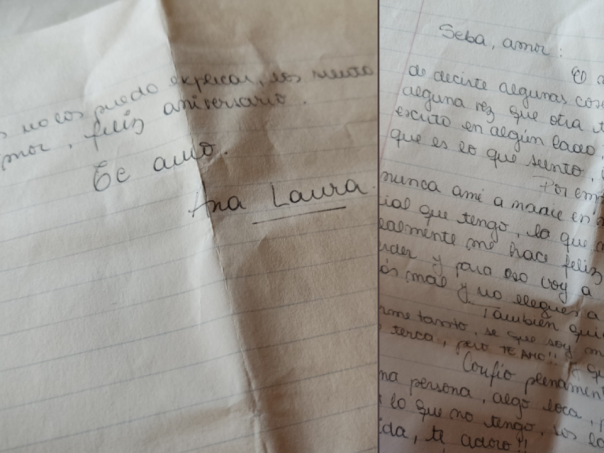 no los puedo explicar, los siento
amor, feliz aniversario.
Te amo.
Ana Laura.
Seba, amor:
El
de decirte algunas cos
alguna vez que otra t
escrito en algún lado
que es lo que siento,
Por em
nunca amé a nadie en
ial que tengo, la que
ealmente me hace feliz
der y para eso voy a
mal y no llegues a
También qui
rme tanto, se que soy m
terca, pero TE AMO!!
Confío plenament
na persona, algo loca,
lo que no tengo, sos lo
ida, te adoro!!